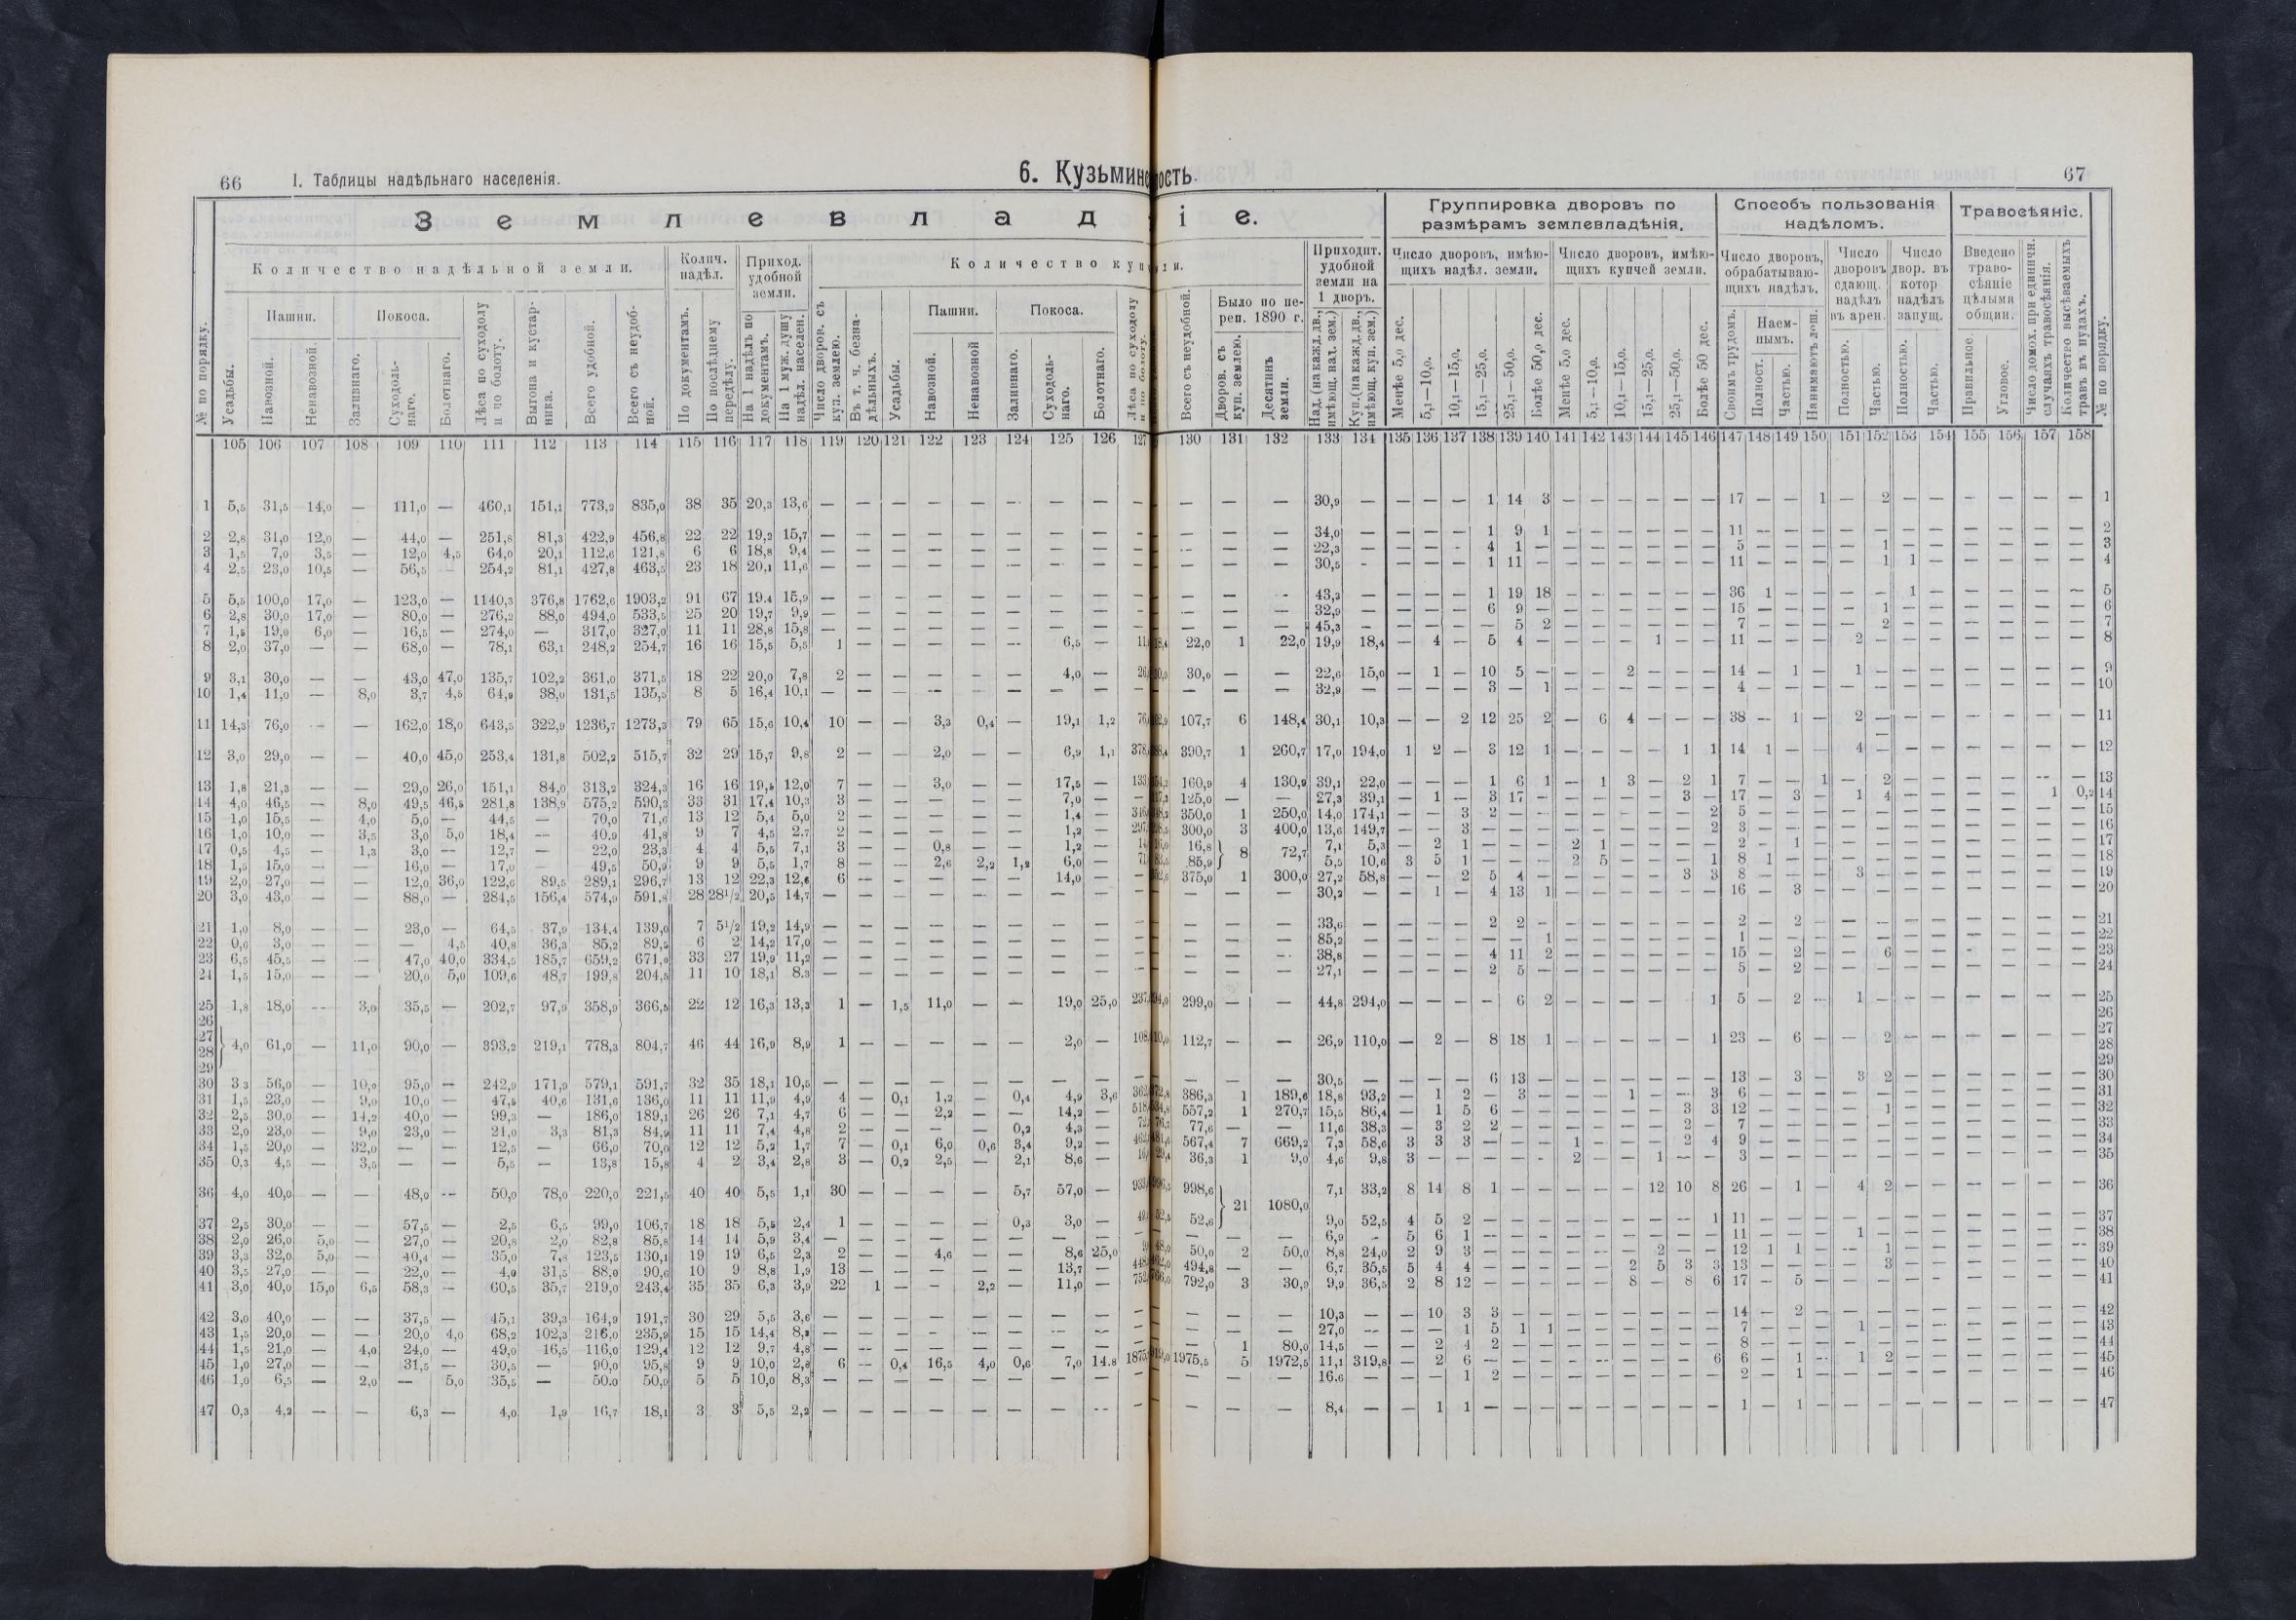 66
I. Таблицы надѣльнаго населенія.
6. Кузьминс
ость.
67
Землевлад
іе.
Группировка дворовъ по размѣрамъ землевладѣнія.
Способъ пользованія надѣломъ.
Травосѣяніе.
№ по порядку.
Количество надѣльной земли.
Колич. надѣл.
Приход. удобной земли.
Количество куп
ли.
Приходит. удобной земли на 1 дворъ.
Число дворовъ, имѣющихъ надѣл. земли.
Число дворовъ, имѣющихъ купчей земли.
Число дворовъ, обрабатывающихъ надѣл.
Число дворовъ сдающ. надѣлъ въ арен.
Число двор. въ котор надѣлъ запущ.
Введено травосѣяніе цѣлыми общин.
Усадьбы.
Пашни.
Покоса.
Навозной.
Ненавозной.
Заливнаго.
Суходольнаго.
Болотнаго.
Лѣса по суходолу и по болоту.
Выгона и кустарника.
Всего удобной.
Всего съ неудобной.
По документамъ.
По послѣднему передѣлу.
На 1 надѣлъ по документамъ.
На 1 муж. душу надѣл. населен.
Число дворов. съ куп. землею.
Въ т. ч. безнадѣльныхъ.
Усадьбы.
Пашни.
Покоса.
Навозной.
Ненавозной
Заливнаго.
Суходольнаго.
Болотнаго.
Лѣса по суходолу и по болоту.
Всего съ неудобной.
Было по переп. 1890 г.
Дворов. съ куп. землею.
Десятинъ земли.
Над. (на кажд. дв., имѣющ. над. зем.)
Куп. (на кажд. дв., имѣющ. куп. зем.)
Менѣе 5,0 дес.
5,1—10,0.
10,1—15,0.
15,1—25,0.
25,1—50,0.
Болѣе 50,0 дес.
Менѣе 5,0 дес.
5,1—10,0.
10,1—15,0.
15,1—25,0.
25,1—50,0.
Болѣе 50 дес.
Своимъ трудомъ.
Наемнымъ.
Полност.
Частью.
Нанимаютъ лош.
Полностью.
Частью.
Полностью.
Частью.
Правильное.
Угловое.
Число домох. при единичн. случаяхъ травосѣянія.
Количество высѣваемыхъ травъ въ пудахъ.
№ по порядку.
105 106 107 108 109 110 111 112 113 114 115 116 117 118 119 120 121 122 123 124 125 126 127 130 131 132 133 134 135 136 137 138 139 140 141 142 143 144 145 146 147 148 149 150 151 152 153 154 155 156 157 158
1 5,5 31,5 14,0 — 111,0 — 460,1 151,1 773,2 835,0 38 35 20,3 13,6 — — — — — — — — — — — — 30,9 — — — — 1 14 3 — — — — — — 17 — — 1 — 2 — — — — — — 1
2 2,8 31,0 12,0 — 44,0 — 251,8 81,3 422,9 456,8 22 22 19,2 15,7 — — — — — — — — — — — — 34,0 — — — — 1 9 1 — — — — — — 11 — — — — — — — — — — — 2
3 1,5 7,0 3,5 — 12,0 4,5 64,0 20,1 112,6 121,8 6 6 18,8 9,4 — — — — — — — — — — — — 22,3 — — — — 4 1 — — — — — — — 5 — — — — 1 — — — — — — 3
4 2,5 23,0 10,5 — 56,5 — 254,2 81,1 427,8 463,5 23 18 20,1 11,6 — — — — — — — — — — — — 30,5 — — — — 1 11 — — — — — — — 11 — — — — 1 1 — — — — — 4
5 5,5 100,0 17,0 — 123,0 — 1140,3 376,8 1762,6 1903,2 91 67 19,4 15,9 — — — — — — — — — — — — 43,2 — — — — 1 19 18 — — — — — — 36 1 — — — — 1 — — — — — 5
6 2,8 30,0 17,0 — 80,0 — 276,2 88,0 494,0 533,5 25 20 19,7 9,9 — — — — — — — — — — — — 32,9 — — — — 6 9 — — — — — — — 15 — — — — 1 — — — — — — 6
7 1,5 19,0 6,0 — 16,5 — 274,0 — 317,0 327,0 11 11 28,8 15,8 — — — — — — — — — — — — 45,3 — — — — — 5 2 — — — — — — 7 — — — — 2 — — — — — — 7
8 2,0 37,0 — — 68,0 — 78,1 63,1 248,2 254,7 16 16 15,5 5,5 1 — — — — — 6,5 — 22,0 1 22,0 19,9 18,4 — 4 — 5 4 — — — — 1 — — 11 — — — 2 — — — — — — — 8
9 3,1 30,0 — — 43,0 47,0 135,7 102,2 361,0 371,5 18 22 20,0 7,8 2 — — — — — 4,0 — 30,0 — — 22,6 15,0 — 1 — 10 5 — — — 2 — — — 14 — 1 — 1 — — — — — — — 9
10 1,4 11,0 — 8,0 3,7 4,5 64,9 38,0 131,5 135,5 8 5 16,4 10,1 — — — — — — — — — — — — 32,9 — — — — 3 — 1 — — — — — — 4 — — — — — — — — — — — 10
11 14,3 76,0 — — 162,0 18,0 643,5 322,9 1236,7 1273,3 79 65 15,6 10,4 10 — — 3,3 0,4 — 19,1 1,2 107,7 6 148,4 30,1 10,3 — — 2 12 25 2 — 6 4 — — — 38 — 1 — 2 — — — — — — — 11
12 3,0 29,0 — — 40,0 45,0 253,4 131,8 502,2 515,7 32 29 15,7 9,8 2 — — 2,0 — — 6,9 1,1 390,7 1 260,7 17,0 194,0 1 2 — 3 12 1 — — — — 1 1 14 1 — — 4 — — — — — — — 12
13 1,8 21,3 — — 29,0 26,0 151,1 84,0 313,2 324,3 16 16 19,5 12,0 7 — — 3,0 — — 17,5 — 160,9 4 130,9 39,1 22,0 — — — 1 6 1 — 1 3 — 2 1 7 — — 1 — 2 — — — — — — 13
14 4,0 46,5 — 8,0 49,5 46,5 281,8 138,9 575,2 590,2 33 31 17,4 10,3 3 — — — — — 7,0 — 125,0 — — 27,3 39,1 — 1 — 3 17 — — — — — 3 — 17 — 3 — 1 4 — — — — 1 0,2 14
15 1,0 15,5 — 4,0 5,0 — 44,5 — 70,0 71,6 13 12 5,4 5,0 2 — — — — — 1,4 — 350,0 1 250,0 14,0 174,1 — — 3 2 — — — — — — — 2 5 — — — — — — — — — — — 15
16 1,0 10,0 — 3,5 3,0 5,0 18,4 — 40,9 41,8 9 7 4,5 2,7 2 — — — — — 1,2 — 300,0 3 400,0 13,6 149,7 — — 3 — — — — — — — — 2 3 — — — — — — — — — — — 16
17 0,5 4,5 — 1,3 3,0 — 12,7 — 22,0 23,3 4 4 5,5 7,1 3 — — 0,8 — — 1,2 — 16,8 } 8 72,7 7,1 5,3 — 2 1 — — — 2 1 — — — — 2 — 1 — — — — — — — — — 17
18 1,5 15,0 — — 16,0 — 17,0 — 49,5 50,9 9 9 5,5 1,7 8 — — 2,6 2,2 1,2 6,0 — 85,9 5,5 10,6 3 5 1 — — — 2 5 — — — 1 8 1 — — — — — — — — — — 18
19 2,0 27,0 — — 12,0 36,0 122,6 89,5 289,1 296,7 13 12 22,3 12,6 6 — — — — — 14,0 — 375,0 1 300,0 27,2 58,8 — — 2 5 4 — — — — — 3 3 8 — — — 3 — — — — — — — 19
20 3,0 43,0 — — 88,0 — 284,5 156,4 574,9 591,8 28 28½ 20,5 14,7 — — — — — — — — — — — — 30,2 — — 1 — 4 13 1 — — — — — — 16 — 3 — — — — — — — — — 20
21 1,0 8,0 — — 23,0 — 64,5 37,9 134,4 139,0 7 5½ 19,2 14,9 — — — — — — — — — — — — 33,6 — — — — 2 2 — — — — — — — 2 — 2 — — — — — — — — — 21
22 0,6 3,0 — — — 4,5 40,8 36,3 85,2 89,2 6 2 14,2 17,0 — — — — — — — — — — — — 85,2 — — — — — — 1 — — — — — — 1 — — — — — — — — — — — 22
23 6,5 45,5 — — 47,0 40,0 334,5 185,7 659,2 671,9 33 27 19,9 11,2 — — — — — — — — — — — — 38,8 — — — — 4 11 2 — — — — — — 15 — 2 — — 6 — — — — — — 23
24 1,5 15,0 — — 20,0 5,0 109,6 48,7 199,8 204,5 11 10 18,1 8,3 — — — — — — — — — — — — 27,1 — — — — 2 5 — — — — — — — 5 — 2 — — — — — — — — — 24
25 1,8 18,0 — 3,0 35,5 — 202,7 97,9 358,9 366,5 22 12 16,3 13,3 1 — 1,5 11,0 — — 19,0 25,0 299,0 — — 44,8 294,0 — — — — 6 2 — — — — 1 5 — 2 — 1 — — — — — — — 25
26 26
27 27
28 } 4,0 61,0 — 11,0 90,0 — 393,2 219,1 778,3 804,7 46 44 16,9 8,9 1 — — — — — 2,0 — 112,7 — — 26,9 110,0 — 2 — 8 18 1 — — — — — 1 23 — 6 — — 2 — — — — — — 28
29 29
30 3,3 56,0 — 10,0 95,0 — 242,9 171,9 579,1 591,7 32 35 18,1 10,5 — — — — — — — — — — — — 30,5 — — — — 6 13 — — — — — — — 13 — 3 — 3 2 — — — — — — 30
31 1,5 23,0 — 9,0 10,0 — 47,5 40,6 131,6 136,0 11 11 11,9 4,9 4 — 0,1 1,2 — 0,4 4,9 3,6 386,3 1 189,6 18,8 93,2 — 1 2 — 3 — — — 1 — — 3 6 — — — — — — — — — — — 31
32 2,5 30,0 — 14,2 40,0 — 99,3 — 186,0 189,1 26 26 7,1 4,7 6 — — 2,2 — — 14,2 — 557,2 1 270,7 15,5 86,4 — 1 5 6 — — — — — — 3 3 12 — — — — 1 — — — — — — 32
33 2,0 23,0 — 9,0 23,0 — 21,0 3,3 81,3 84,9 11 11 7,4 4,8 2 — — — — 0,2 4,3 — 77,6 — — 11,6 38,3 — 3 2 2 — — — — — — 2 — 7 — — — — — — — — — — — 33
34 1,5 20,0 — 32,0 — — 12,5 — 66,0 70,0 12 12 5,2 1,7 7 — 0,1 6,0 0,6 3,4 9,2 — 567,4 7 669,2 7,3 58,6 3 3 3 — — — 1 — — — 2 4 9 — — — — — — — — — — — 34
35 0,3 4,5 — 3,5 — — 5,5 — 13,8 15,8 4 2 3,4 2,8 3 — 0,2 2,5 — 2,1 8,6 — 36,3 1 9,0 4,6 9,8 3 — — — — — 2 — — 1 — — 3 — — — — — — — — — — — 35
36 4,0 40,0 — — 48,0 — 50,0 78,0 220,0 221,5 40 40 5,5 1,1 30 — — — — 5,7 57,0 — 998,6 } 21 1080,0 7,1 33,2 8 14 8 1 — — — — — 12 10 8 26 — 1 — 4 2 — — — — — — 36
37 2,5 30,0 — — 57,5 — 2,5 6,5 99,0 106,7 18 18 5,5 2,4 1 — — — — 0,3 3,0 — 52,6 9,0 52,5 4 5 2 — — — — — — — — 1 11 — — — — — — — — — — — 37
38 2,0 26,0 5,0 — 27,0 — 20,8 2,0 82,8 85,8 14 14 5,9 3,4 — — — — — — — — — — — — 6,9 — 5 6 1 — — — — — — — — — 11 — — — 1 — — — — — — — 38
39 3,3 32,0 5,0 — 40,4 — 35,0 7,8 123,5 130,1 19 19 6,5 2,3 2 — — 4,6 — — 8,6 25,0 50,0 2 50,0 8,8 24,0 2 9 3 — — — — — — 2 — — 12 1 1 — — 1 — — — — — — 39
40 3,5 27,0 — — 22,0 — 4,0 31,5 88,0 90,6 10 9 8,8 1,9 13 — — — — — 13,7 — 494,8 — — 6,7 35,5 5 4 4 — — — — — 2 5 3 3 13 — — — — 3 — — — — — — 40
41 3,0 40,0 15,0 6,5 58,3 — 60,5 35,7 219,0 243,4 35 35 6,3 3,9 22 1 — — 2,2 — 11,0 — 792,0 3 30,9 9,9 36,5 2 8 12 — — — — — 8 — 8 6 17 — 5 — — — — — — — — — 41
42 3,0 40,0 — — 37,5 — 45,1 39,3 164,9 191,7 30 29 5,5 3,6 — — — — — — — — — — — — 10,3 — — 10 3 3 — — — — — — — — 14 — 2 — — — — — — — — — 42
43 1,5 20,0 — — 20,0 4,0 68,2 102,3 216,0 235,9 15 15 14,4 8,3 — — — — — — — — — — — — 27,0 — — — 1 5 1 1 — — — — — — 7 — — — 1 — — — — — — — 43
44 1,5 21,0 — 4,0 24,0 — 49,0 16,5 116,0 129,4 12 12 9,7 4,8 — — — — — — — — — — 1 80,0 14,5 — — 2 4 2 — — — — — — — — 8 — — — — — — — — — — — 44
45 1,0 27,0 — — 31,5 — 30,5 — 90,0 95,8 9 9 10,0 2,8 6 — 0,4 16,5 4,0 0,6 7,0 14,8 1975,5 5 1972,5 11,1 319,8 — 2 6 — — — — — — — — 6 6 — 1 — 1 2 — — — — — — 45
46 1,0 6,5 — 2,0 — 5,0 35,5 — 50,0 50,0 5 5 10,0 8,3 — — — — — — — — — — — — 16,6 — — — 1 2 — — — — — — — — 2 — 1 — — — — — — — — — 46
47 0,3 4,2 — — 6,3 — 4,0 1,9 16,7 18,1 3 3 5,5 2,2 — — — — — — — — — — — — 8,4 — — 1 1 — — — — — — — — — 1 — 1 — — — — — — — — — 47